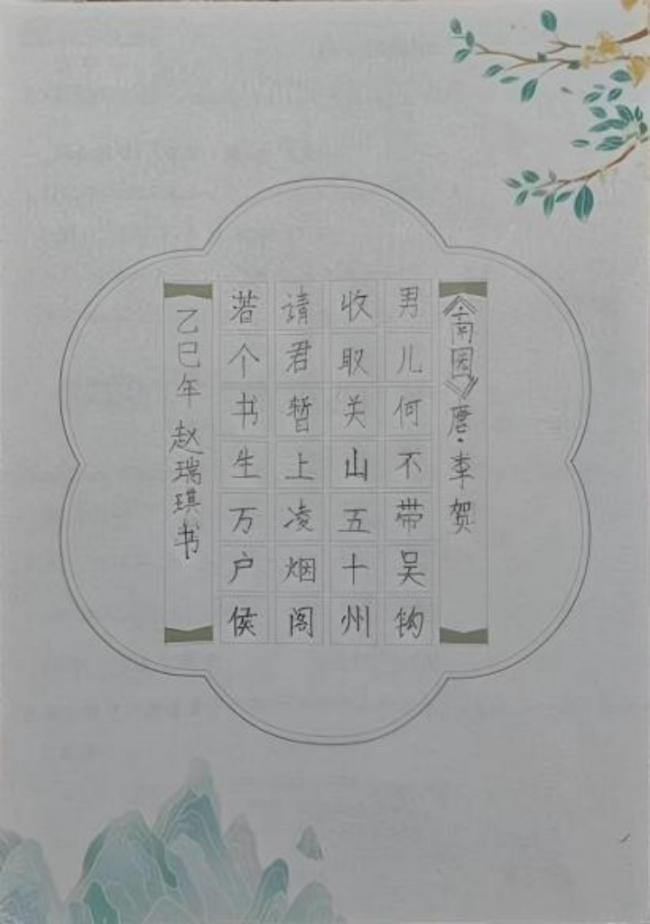 《南园》唐·李贺
男儿何不带吴钩
收取关山五十州
请君暂上凌烟阁
若个书生万户侯
乙巳年 赵瑞琪书